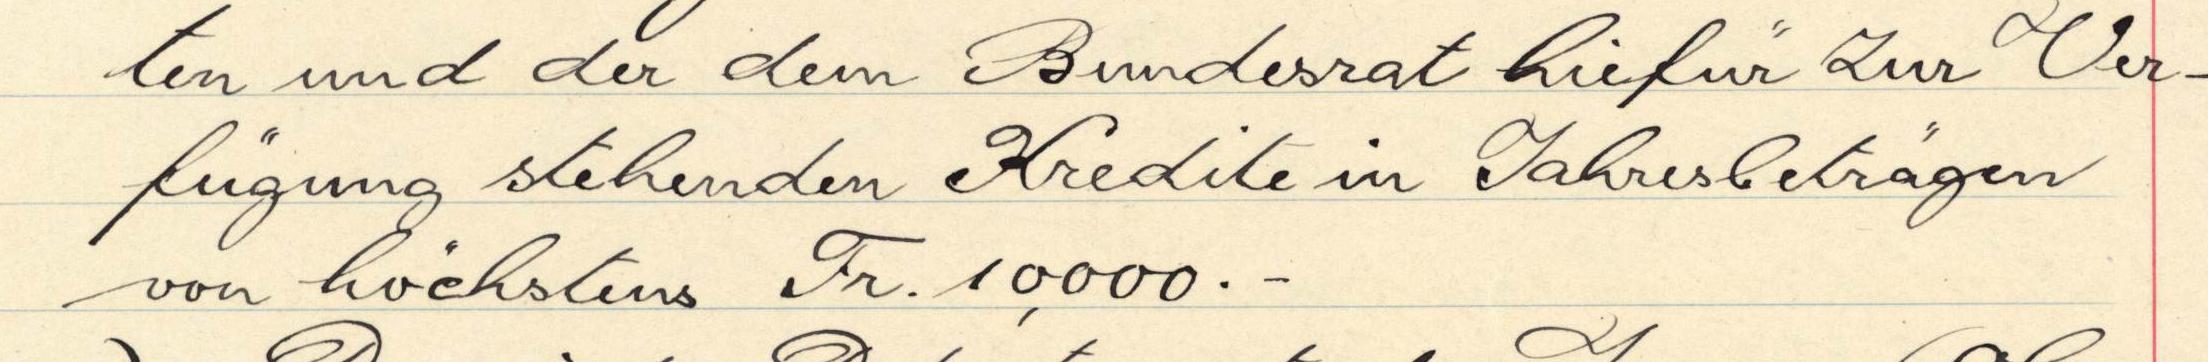 ten und der dem Bundesrat hiefür zur Ver-
fügung stehenden Kredite in Jahresbeträgen
von höchstens Fr. 10,000.-